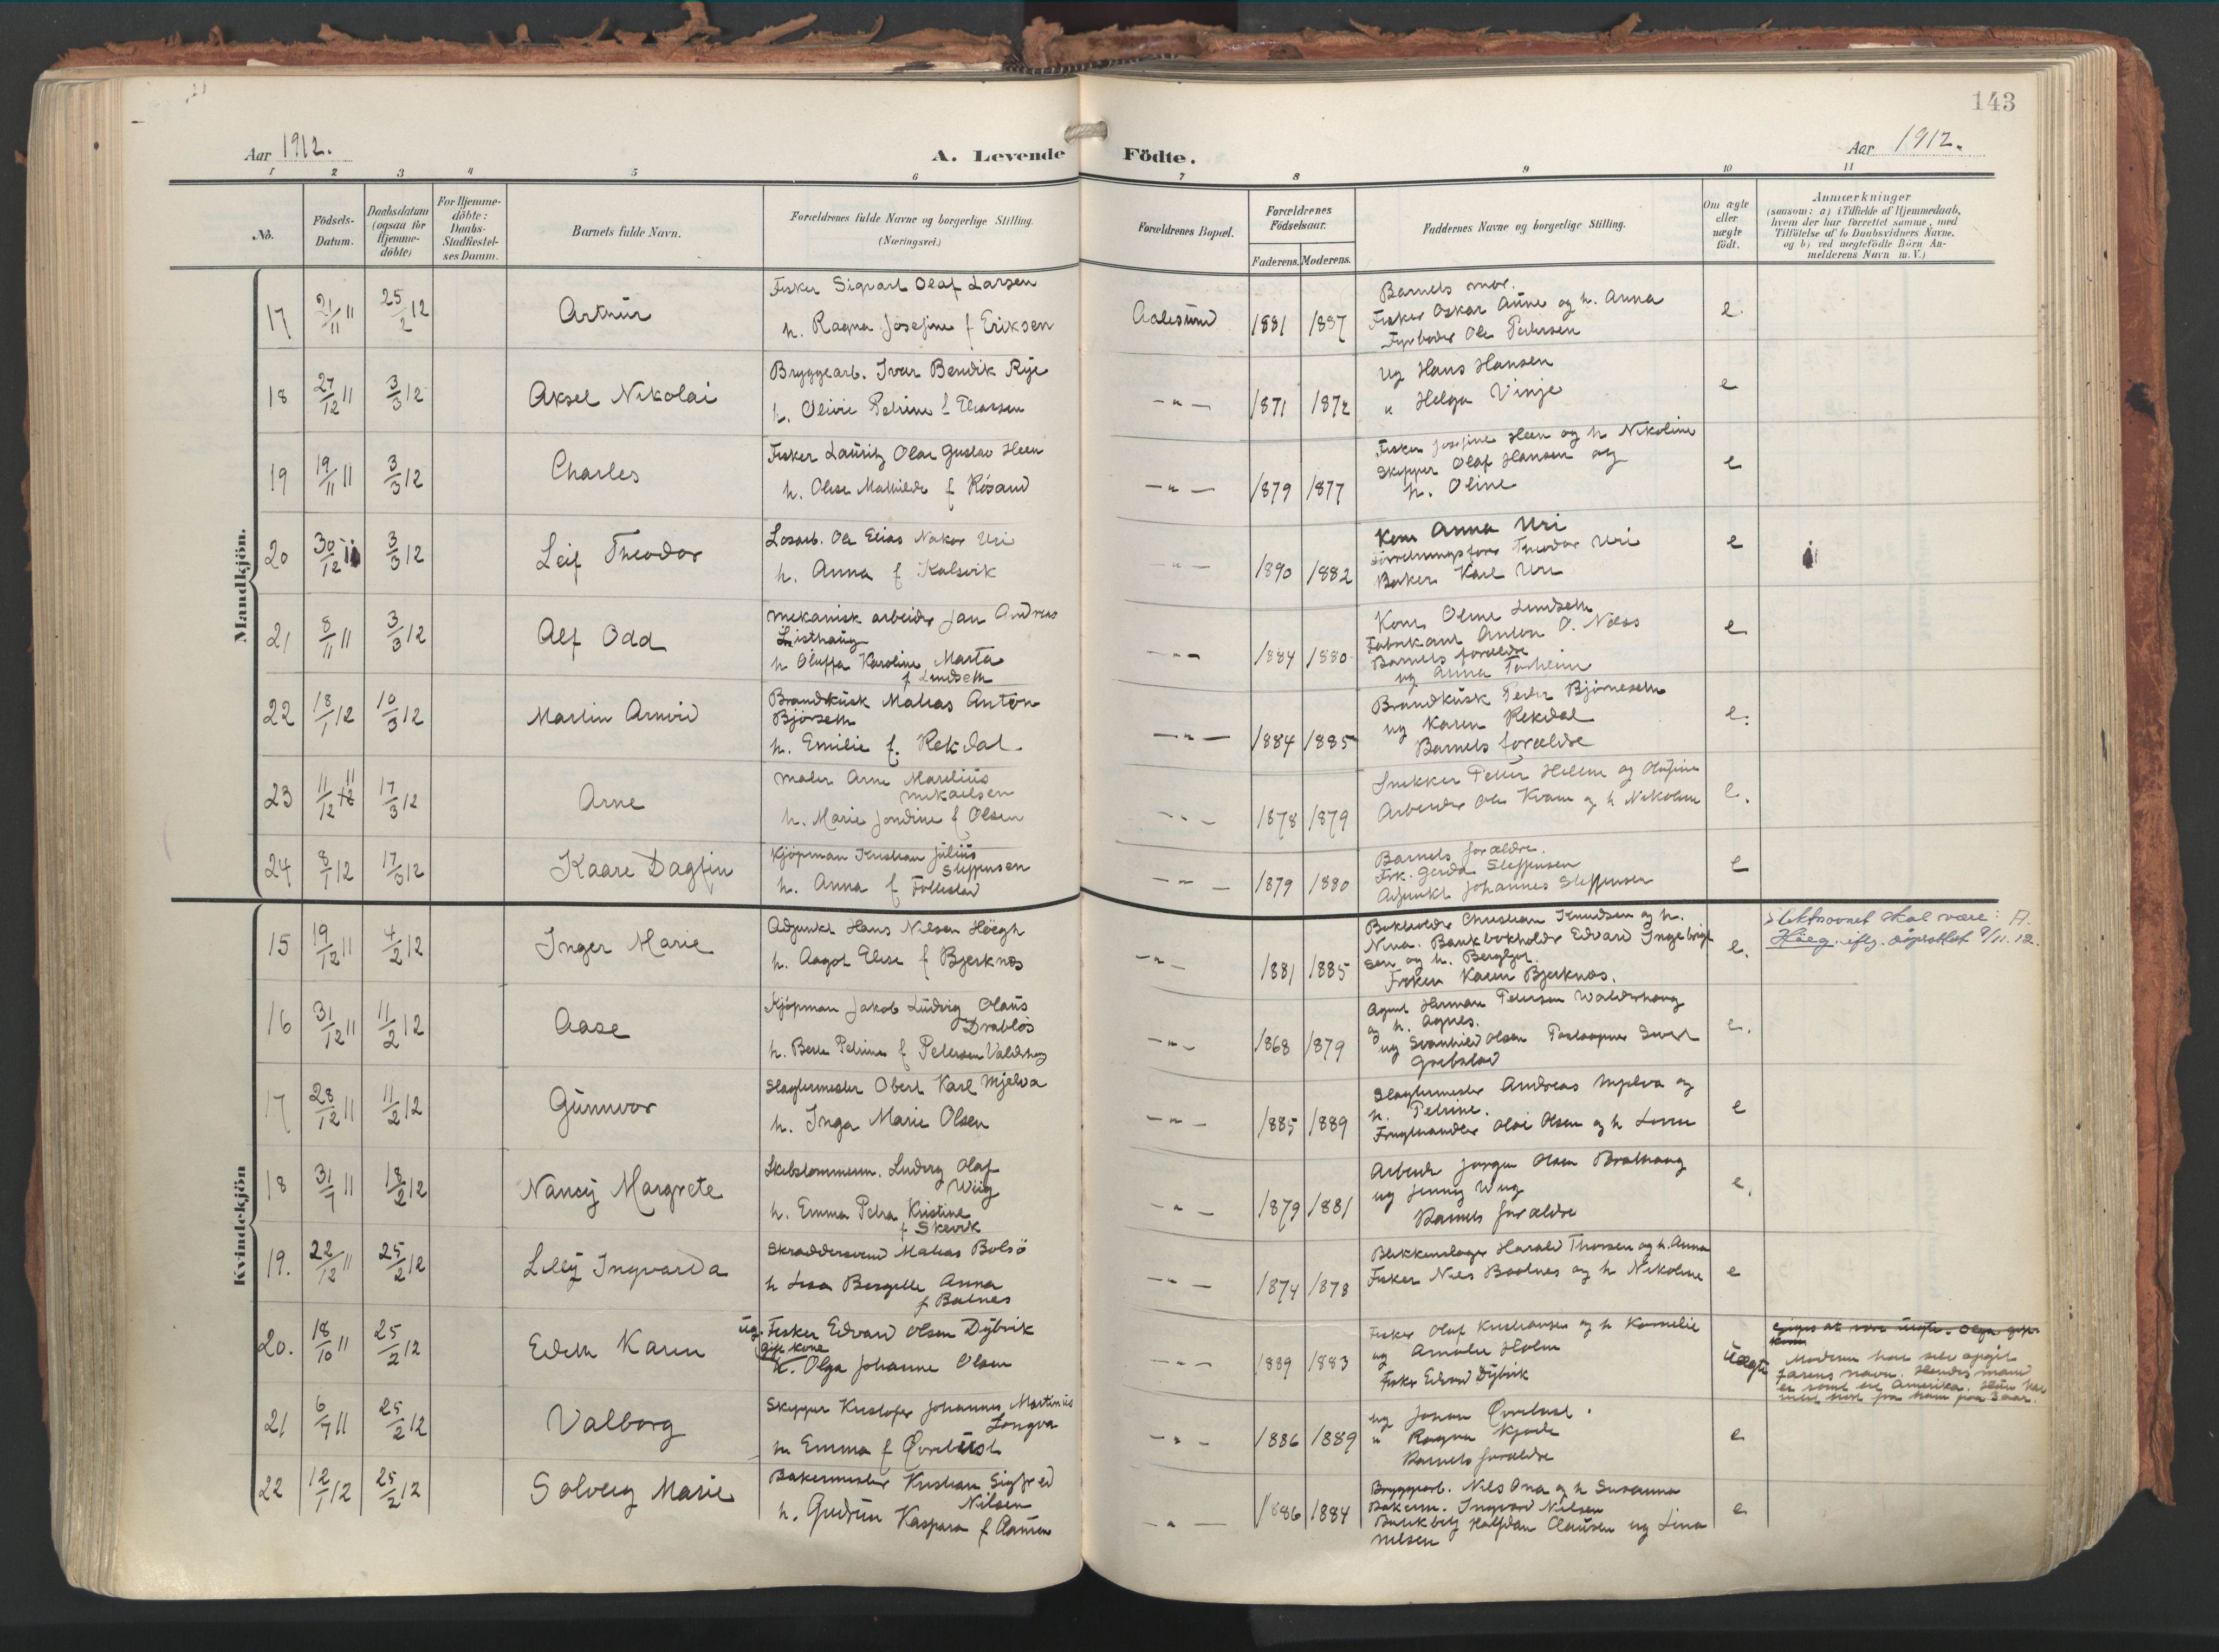 143
Aar 1912.
A. Levende Födte.
Aar 1912.
1 2 3 4 5 6 7 8 9 10 11
No.
Födsels-Datum.
Daabsdatum (ogsaa for Hjemme-döbte)
For Hjemme-döbte: Daabs-Stadfæstel-ses Datum.
Barnets fulde Navn.
Forældrenes fulde Navne og borgerlige Stilling.
(Næringsvei.)
Forældrenes Bopæl.
Forældrenes Födselsaar.
Faderens. Moderens.
Faddernes Navne og borgerlige Stilling.
Om ægte eller uægte födt.
Anmærkninger
(saasom: a) i Tilfælde af Hjemmedaab,
hvem der har forrettet samme, med
Tilföielse af to Daabsvidners Navne.
og b) ved uægtefödte Börn An-
melderens Navn m. V.)
Mandkjön.
17 21/11 11 25/2 12 Arthur
Fisker Sigvart Olaf Larsen
h. Ragna Josefine f Eriksen
Aalesund 1881 1887
Barnets mor.
Fisker Oskar Aune og h. Anna
Fyrböder Ole Pedersen
e.
18 27/12 11 3/3 12 Aksel Nikolai
Bryggearb. Ivar Bendik Rye
h. Olivie Petrine f Thorsen
— " — 1871 1872
Ug Hans Hansen
" Helga Vinje
e
19 19/11 11 3/3 12 Charles
Fisker Lauritz Olai Gustav Heen
h. Olise Mathilde f Rösand
— " — 1879 1877
Fisker Josefine Heen og h Nikoline
Skipper Olaf Hansen og
h. Oline
e
20 30/12 11 3/3 12 Leif Theodor
Losarb. Ole Elias Uri
h. Anna f Kalsvik
— " — 1890 1882
Kone Anna Uri
Theodor Uri
Baker Karl Uri
e
21 8/11 11 3/3 12 Alf Odd
mekanisk arbeider Jan Andreas
Listhaug
h Oluffa Karoline Marta
f Lindseth
— " — 1884 1880
Kone Oline Lindseth
Fabrikant Anton O. Næss
Barnets forældre
ug Anna
e
22 18/1 12 10/3 12 Martin Arnvid
Brandkusk Matias Anton
Björseth
h. Emilie f. Rekdal.
— " — 1884 1885
Brandkusk Peder Björneseth
ug Karen Rekdal
Barnets forældre
e.
23 11/12 11 17/3 12 Arne
maler Arne Marelius
Mikaelsen
h. Marie Jondine f Olsen
— " — 1878 1879
Snekker Petter Hellem og Olufine
Arbeider Ole Kvam og h Nikoline
e.
24 8/1 12 17/3 12 Kaare Dagfin
Kjöpman Kristian Julius
Steffensen
h. Anna f Follestad
— " — 1879 1880
Barnets forældre.
Frk. Gerda Steffensen
Adjunkt Johannes Steffensen
e
Kvindekjön
15 19/12 11 4/2 12 Inger Marie
Adjunkt Hans Nilsen Höegh
h. Aagot Elise f Bjerknes
— " — 1881 1885
Bokholder Christian Knudsen og h.
Nina. Bankbokholder Edvard Ingebrigt
sen og h. Bergljot.
Fröken Karen Bjerknes.
e.
Slektsnavnet skal være:
Höeg. iflg. dåpsattest 9/11.12.
16 31/12 11 11/2 12 Aase
Kjöpman Jakob Ludvig Olaus
Drablös
h. Berte Petrine f Petersen Valderhaug
— " — 1868 1879
Agent Herman Petersen Walderhaug
og h. Agnes.
ug Svanhild Olsen
Grebstad
e.
17 28/12 11 11/2 12 Gunnvor
Slagtermester Obert Karl Mjelva
h. Inga Marie Olsen
— " — 1885 1889
Slagtermester Andreas Mjelva og
h. Petrine.
Frugthandler Olai Olsen og h Lovise
e
18 31/7 11 18/2 12 Nancy Margrete
Skibstömmerm. Ludvig Olaf
Wiig
h. Emma Petra Kristine
f Skevik
— " — 1879 1881
Arbeider Jörgen Olsen Brathaug
ug Jenny Wiig
Barnets forældre
e.
19. 22/12 11 25/2 12 Lilly Ingvarda
Skræddersvend Matias Bolsö
h Lisa Bergitte Anna
f Balnes
— " — 1874 1878
Blikkenslager Harald Thorsen og h. Anna
Fisker Nils Baalnes og h Nikoline
e
20. 18/10 11 25/2 12 Edith Karen
ug. Fisker Edvard Olsen Dybvik
Gift kone
K. Olga Johanne Olsen
— " — 1889 1883
Fisker Olaf Kristiansen og h Kornelie
ug Amalie Holm
Fisker Edvard Dybvik
Uægte
Moderen har selv opgit
farens navn. Hendes mand
er reist til Amerika. Hun har
intet hört fra ham paa 3 aar.
21 6/7 11 25/2 12 Valborg
Skipper Kristofer Johannes Martinius
Longva
h Emma f Överlust
— " — 1886 1889
ug Johan Överlust.
" Ragna
Barnets forældre
e
22 12/1 12 25/2 12 Solveig Marie
Bakermester Kristian Sigfred
Nilsen
h. Gudrun Kaspara f
— " — 1886 1884
Bryggearb. Nils Ona og h Susanna
Bakerm. Ingvard Nilsen
Halfdan Clausen ug Lina
Nilsen
e